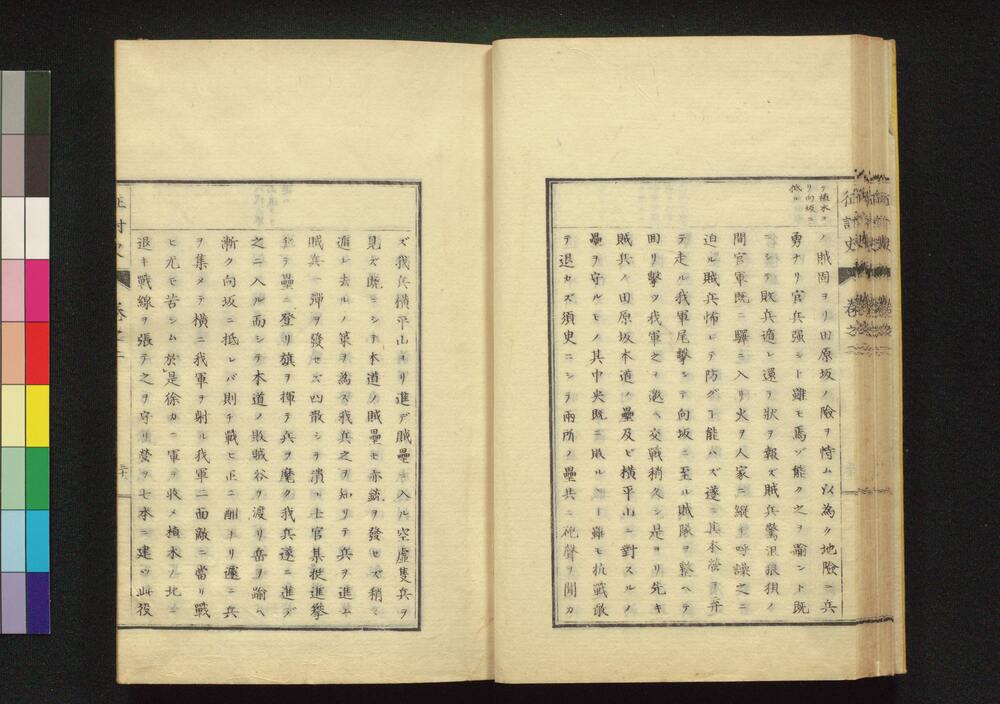 征討史
卷之
テ植木ヨ
リ向坂ニ
抵ル
ノ賊固ヨリ田原坂ノ險ヲ恃ム以為ク地險ニ兵
勇ナリ官兵強シト雖モ焉ゾ能ク之ヲ踰ント既
ニシテ敗兵遁レ還テ狀ヲ報ズ賊兵驚沮狼狽ノ
間官軍既ニ驛ニ入リ火ヲ人家ニ縱チ呼譟之ニ
迫ル賊兵怖レテ防グ丁能ハズ遂ニ其本營ヲ弃
テ走ル我軍尾擊シテ向坂ニ至ル賊隊ヲ整ヘテ
回リ擊ツ我軍之ヲ邀ヘ交戰稍久シ是ヨリ先キ
賊兵ノ田原坂本道ノ壘及ビ橫平山ニ對スルノ
壘ヲ守ルモノ其中央既ニ敗ルヽト雖モ抗戰敢
テ退カズ須臾ニシテ兩所ノ壘共ニ砲聲ヲ聞カ
ズ我兵橫平山ヨリ進デ賊壘ニ入ル空虛隻兵ヲ
見ズ既ニシテ本道ノ賊壘モ亦銃ヲ發セズ稍ミ
遁レ去ルノ策ヲ為ス我兵之ヲ知リテ兵ヲ進ム
賊兵一彈ヲ發セズ四散シテ潰ユ士官某挺進攀
テ壘ニ登リ旗ヲ揮テ兵ヲ麾ク我兵遂ニ進デ
之ニ入ル而シテ本道ノ敗賊谷ヲ渡リ岳ヲ踰ヘ
漸ク向坂ニ抵レバ則チ戰ヒ正ニ酣ナリ遽ニ兵
ヲ集メテ橫ニ我軍ヲ射ル我軍二面敵ニ當リ戰
ヒ尤モ苦シム於是徐カニ軍ヲ收メ植木ノ北ニ
退キ戰線ヲ張テ之ヲ守リ營ヲ七本ニ建ツ此役